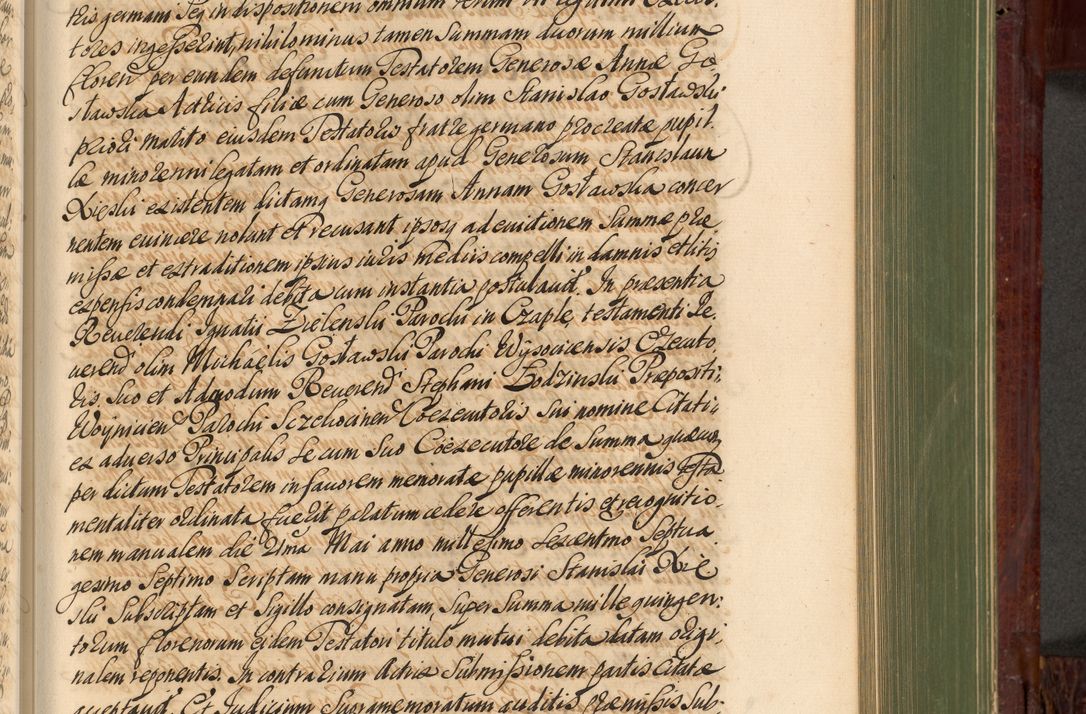 tris germani seq in dispositionem omnium rerum
tores ingesserint, nihilominus tamen Summam duorum millium
floren per eundem defunctum Testatorem Generosæ Annæ Go„
stawska Actricis filiæ cum Generoso olim Stanislao Gostawski
priori marito eiusdem Testatoris fratre germano procreatæ pupil„
læ minorenni legatam et ordinatam apud Generosum Stanislaum
Kieslii existentem dictamq Generosam Annam Gostawska concer
nentem evincere nolunt et recusant ipsosq ad evictionem Summæ præ„
missæ et extraditionem ipsius iuris mediis compelli in damnis et litis
expensis condemnari debita cum instantia postulavit. In præsentia
Reverendi Ignatii Zielenski Parochi in Czaple, testamenti Re„
verend olim Michaelis Gostawski Parochi Wysocicensis Executo
ris. Suo et Admodum Reverend Stephani Lodzinski Præpositi„
Woynicien Parochi Szczekocinen Coexecutoris sui nomine Citati„
ex adverso Principalis se cum Suo Coexecutore de Summa quacunq
per dictum Testatorem in favorem memoratæ pupillæ minorennis testa„
mentaliter ordinata fuerit paratum cedere offerentis et recognitio„
nem manualem die 2ma Mai anno millesimo sexcentmo Septua„
gesimo Septimo scriptam manu propria Generosi Stanislai Kie
slii Subscriptam et Sigillo consignatam, Super Summa mille quingen„
torum florenorum eidem Testatori titulo mutui debita datam origi„
nalem reponentis. In contrarium Actrix Submissionem partis citatæ
acceptavit. Et Judicium Supramemoratum auditis præmissis Sub„